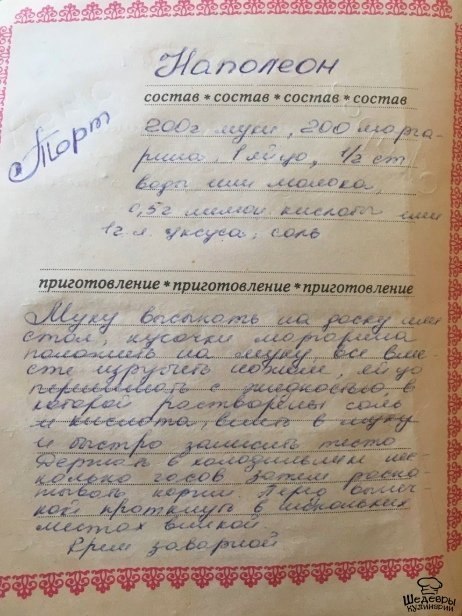 Наполеон
Торт
состав * состав * состав * состав
200г муки, 200 марга-
рина, 1 яйцо, 1/2 ст
воды или молока,
0,5г лимон кислоты или
1г.л. уксуса, соль
приготовление * приготовление * приготовление
Муку высыпать на доску или
стол, кусочки маргарина
положить на муку, все вме-
сте изрубить ножом, яйцо
перемешать с жидкостью в
которой растворены соль
и кислота, влить в муку
и быстро замесить тесто
Держать в холодильник нес-
колько часов. Затем раска-
тывать коржи. Перед выпеч-
кой проткнуть в нескольких
местах вилкой.
Крем заварной
Шедевры
Кулинарии